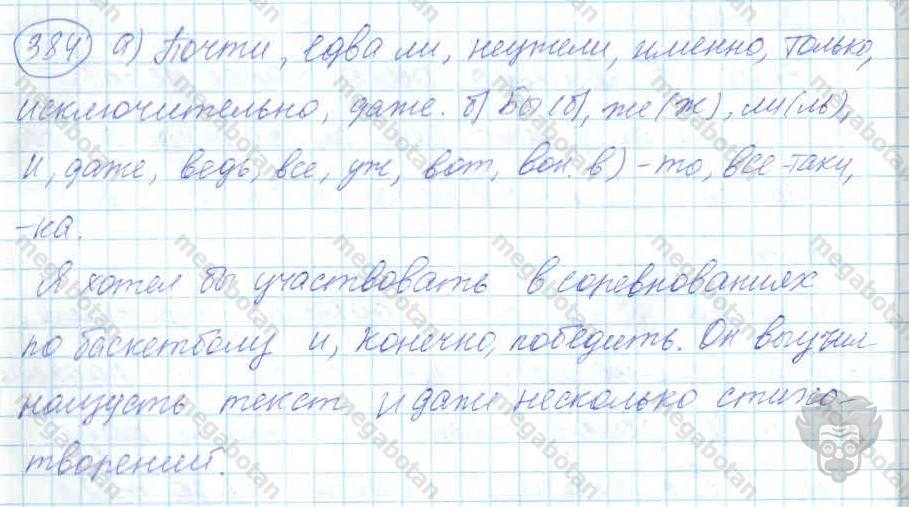 384 а) Почти, едва ли, неужели, именно, только,
исключительно, даже. б) Бы (б), же (ж), ли (ль),
и, даже, ведь, все, уж, вот, вон. в) -то, все-таки,
-ка.
Я хотел бы участвовать в соревнованиях
по баскетболу и, конечно, победить. Он выучил
наизусть текст и даже несколько стихо-
творений.